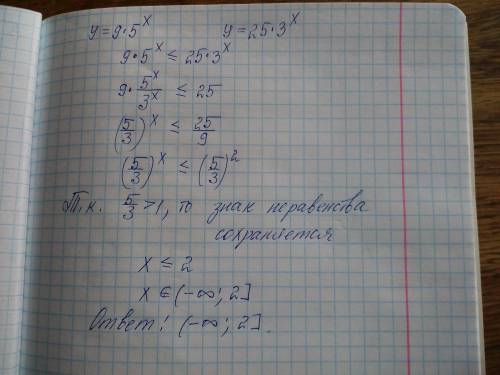 y = 9·5^x y = 25·3^x
9·5^x ≤ 25·3^x
9· 5^x/3^x ≤ 25
(5/3)^x ≤ 25/9
(5/3)^x ≤ (5/3)^2
Т.к. 5/3 >1, то знак неравенства
сохраняется
x ≤ 2
x ∈ (-∞; 2]
Ответ: (-∞; 2].